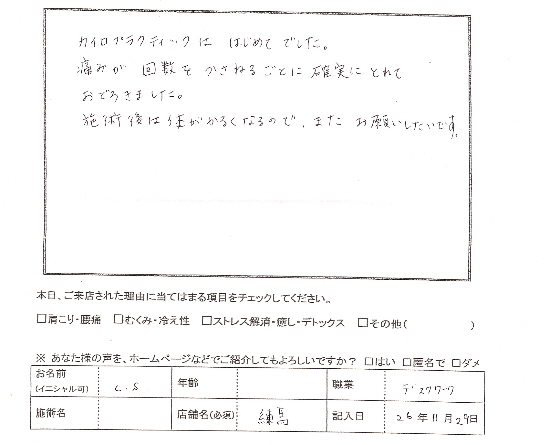 カイロプラクティックは はじめてでした。
痛みが 回数を かさねるごとに 確実にとれて
おどろきました。
施術後は体がかるくなるので、また お願いしたいです。
本日、ご来店された理由に当てはまる項目をチェックしてください。
□肩こり・腰痛 □むくみ・冷え性 □ストレス解消・癒し・デトックス □その他( )
※ あなた様の声を、ホームページなどでご紹介してもよろしいですか? □はい □匿名で □ダメ
お名前 (イニシャル可) C.S 年齢 職業 デスクワーク
施術名 店舗名(必須) 練馬 記入日 26年11月29日